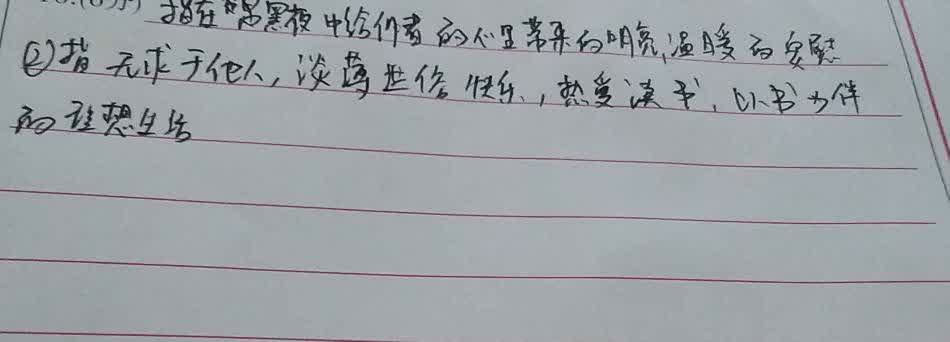 指在黑夜中给作者的心里带来的明亮,温暖的安慰
②指无求于他人,淡薄世俗快乐,热爱读书,以书为伴
的理想生活